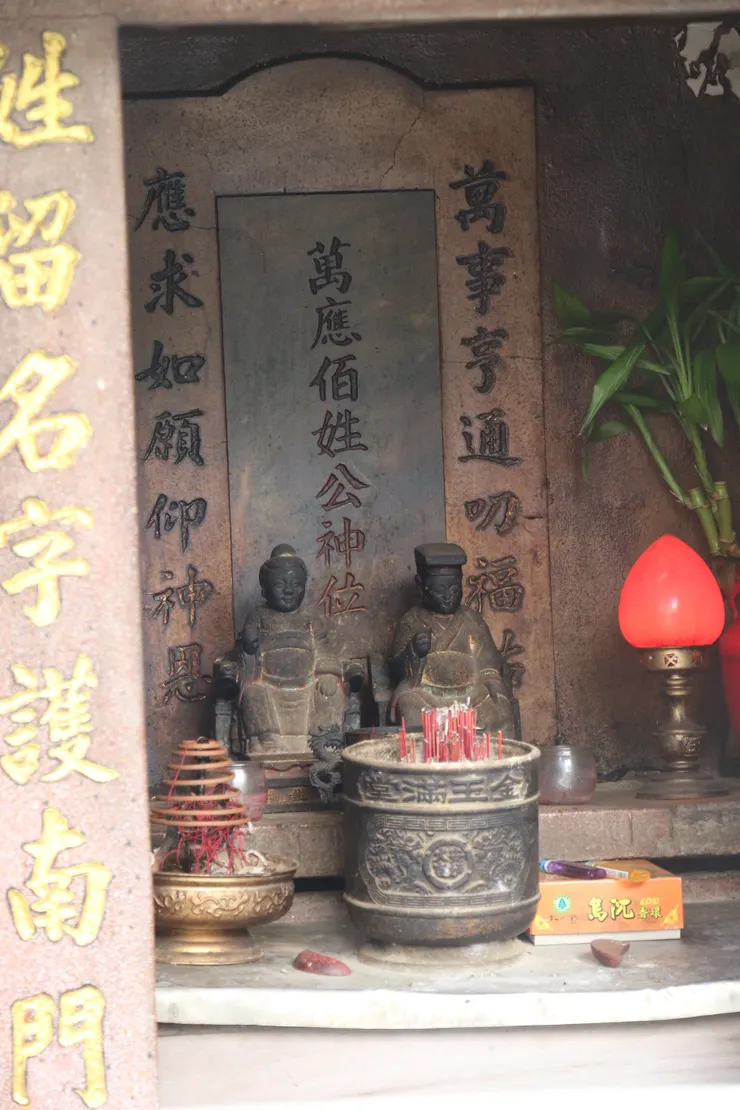 萬事亨通叨福
萬應佰姓公神位
應求如願仰神恩
姓留名字護南門
金玉滿堂
烏沉
香環